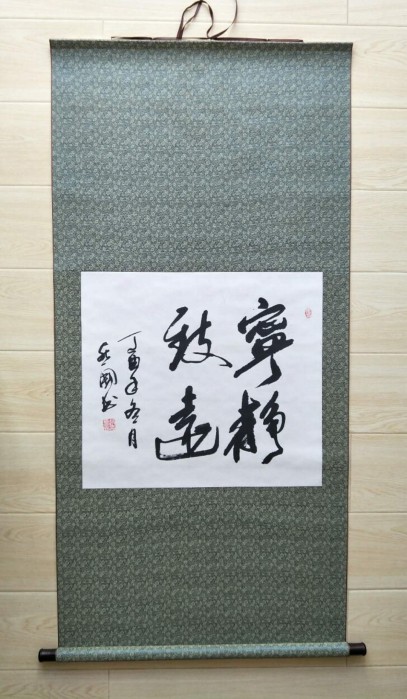 寧靜
致遠
丁酉年冬月